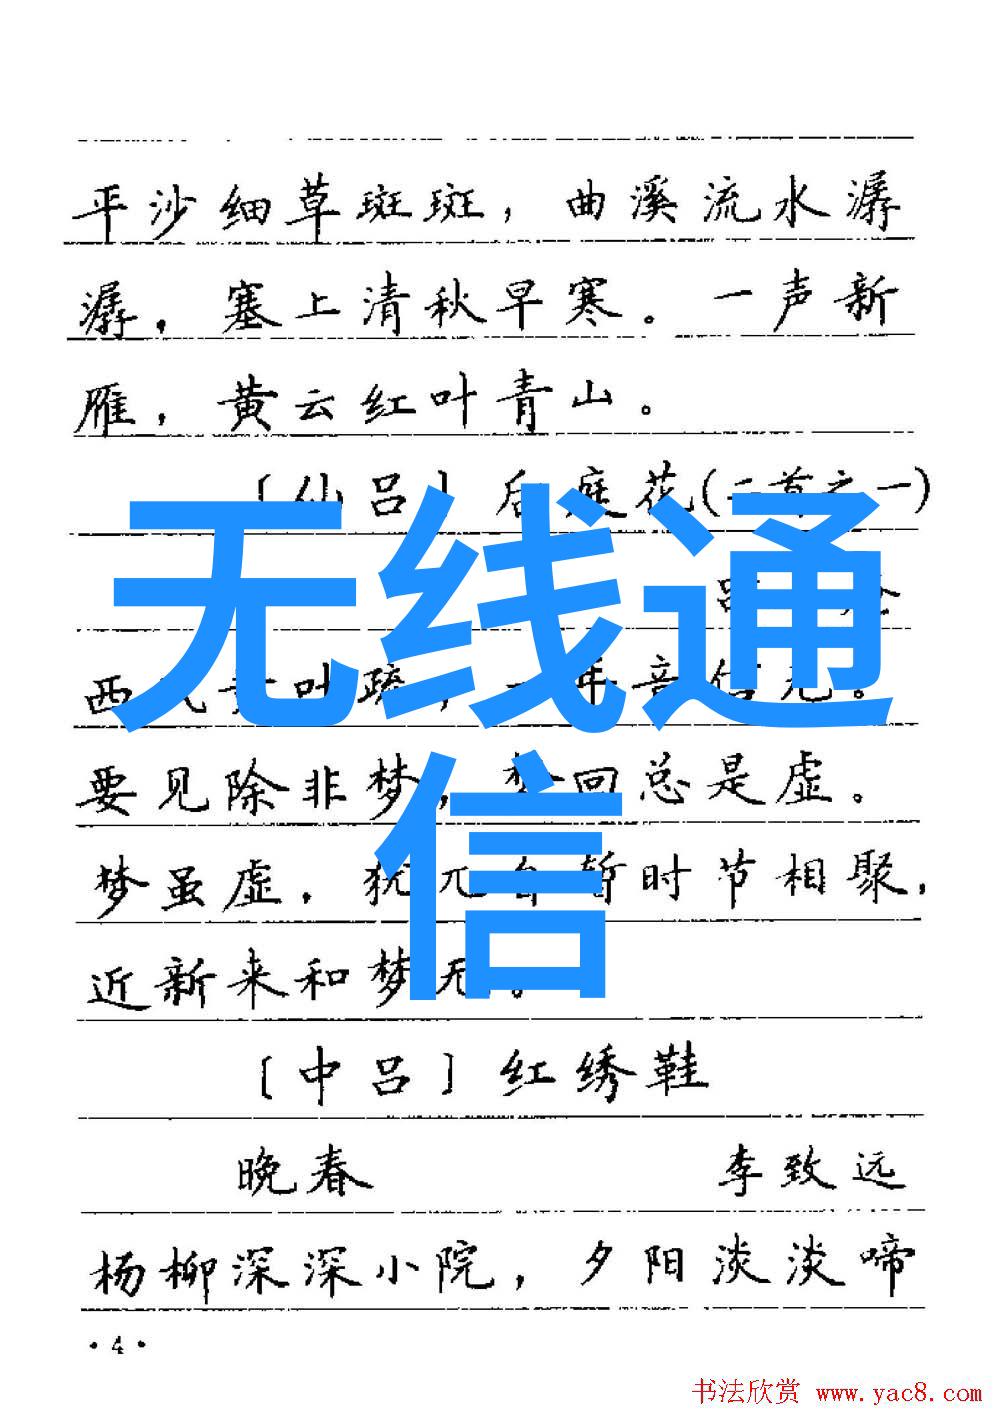 平沙细草斑斑，曲溪流水潺
潺，塞上清秋早寒。一声新
雁，黄云红叶青山。
〔仙吕〕后庭花(二首之一)
无线通
吕
西风黄叶疏，一年音信无。
要见除非梦，梦回总是虚。
信
梦虽虚，犹兀自暂时节相聚，
近新来和梦无。
〔中吕〕红绣鞋
晚春 李致远
杨柳深深小院，夕阳淡淡啼
·4·
书法欣赏 www.yac8.com